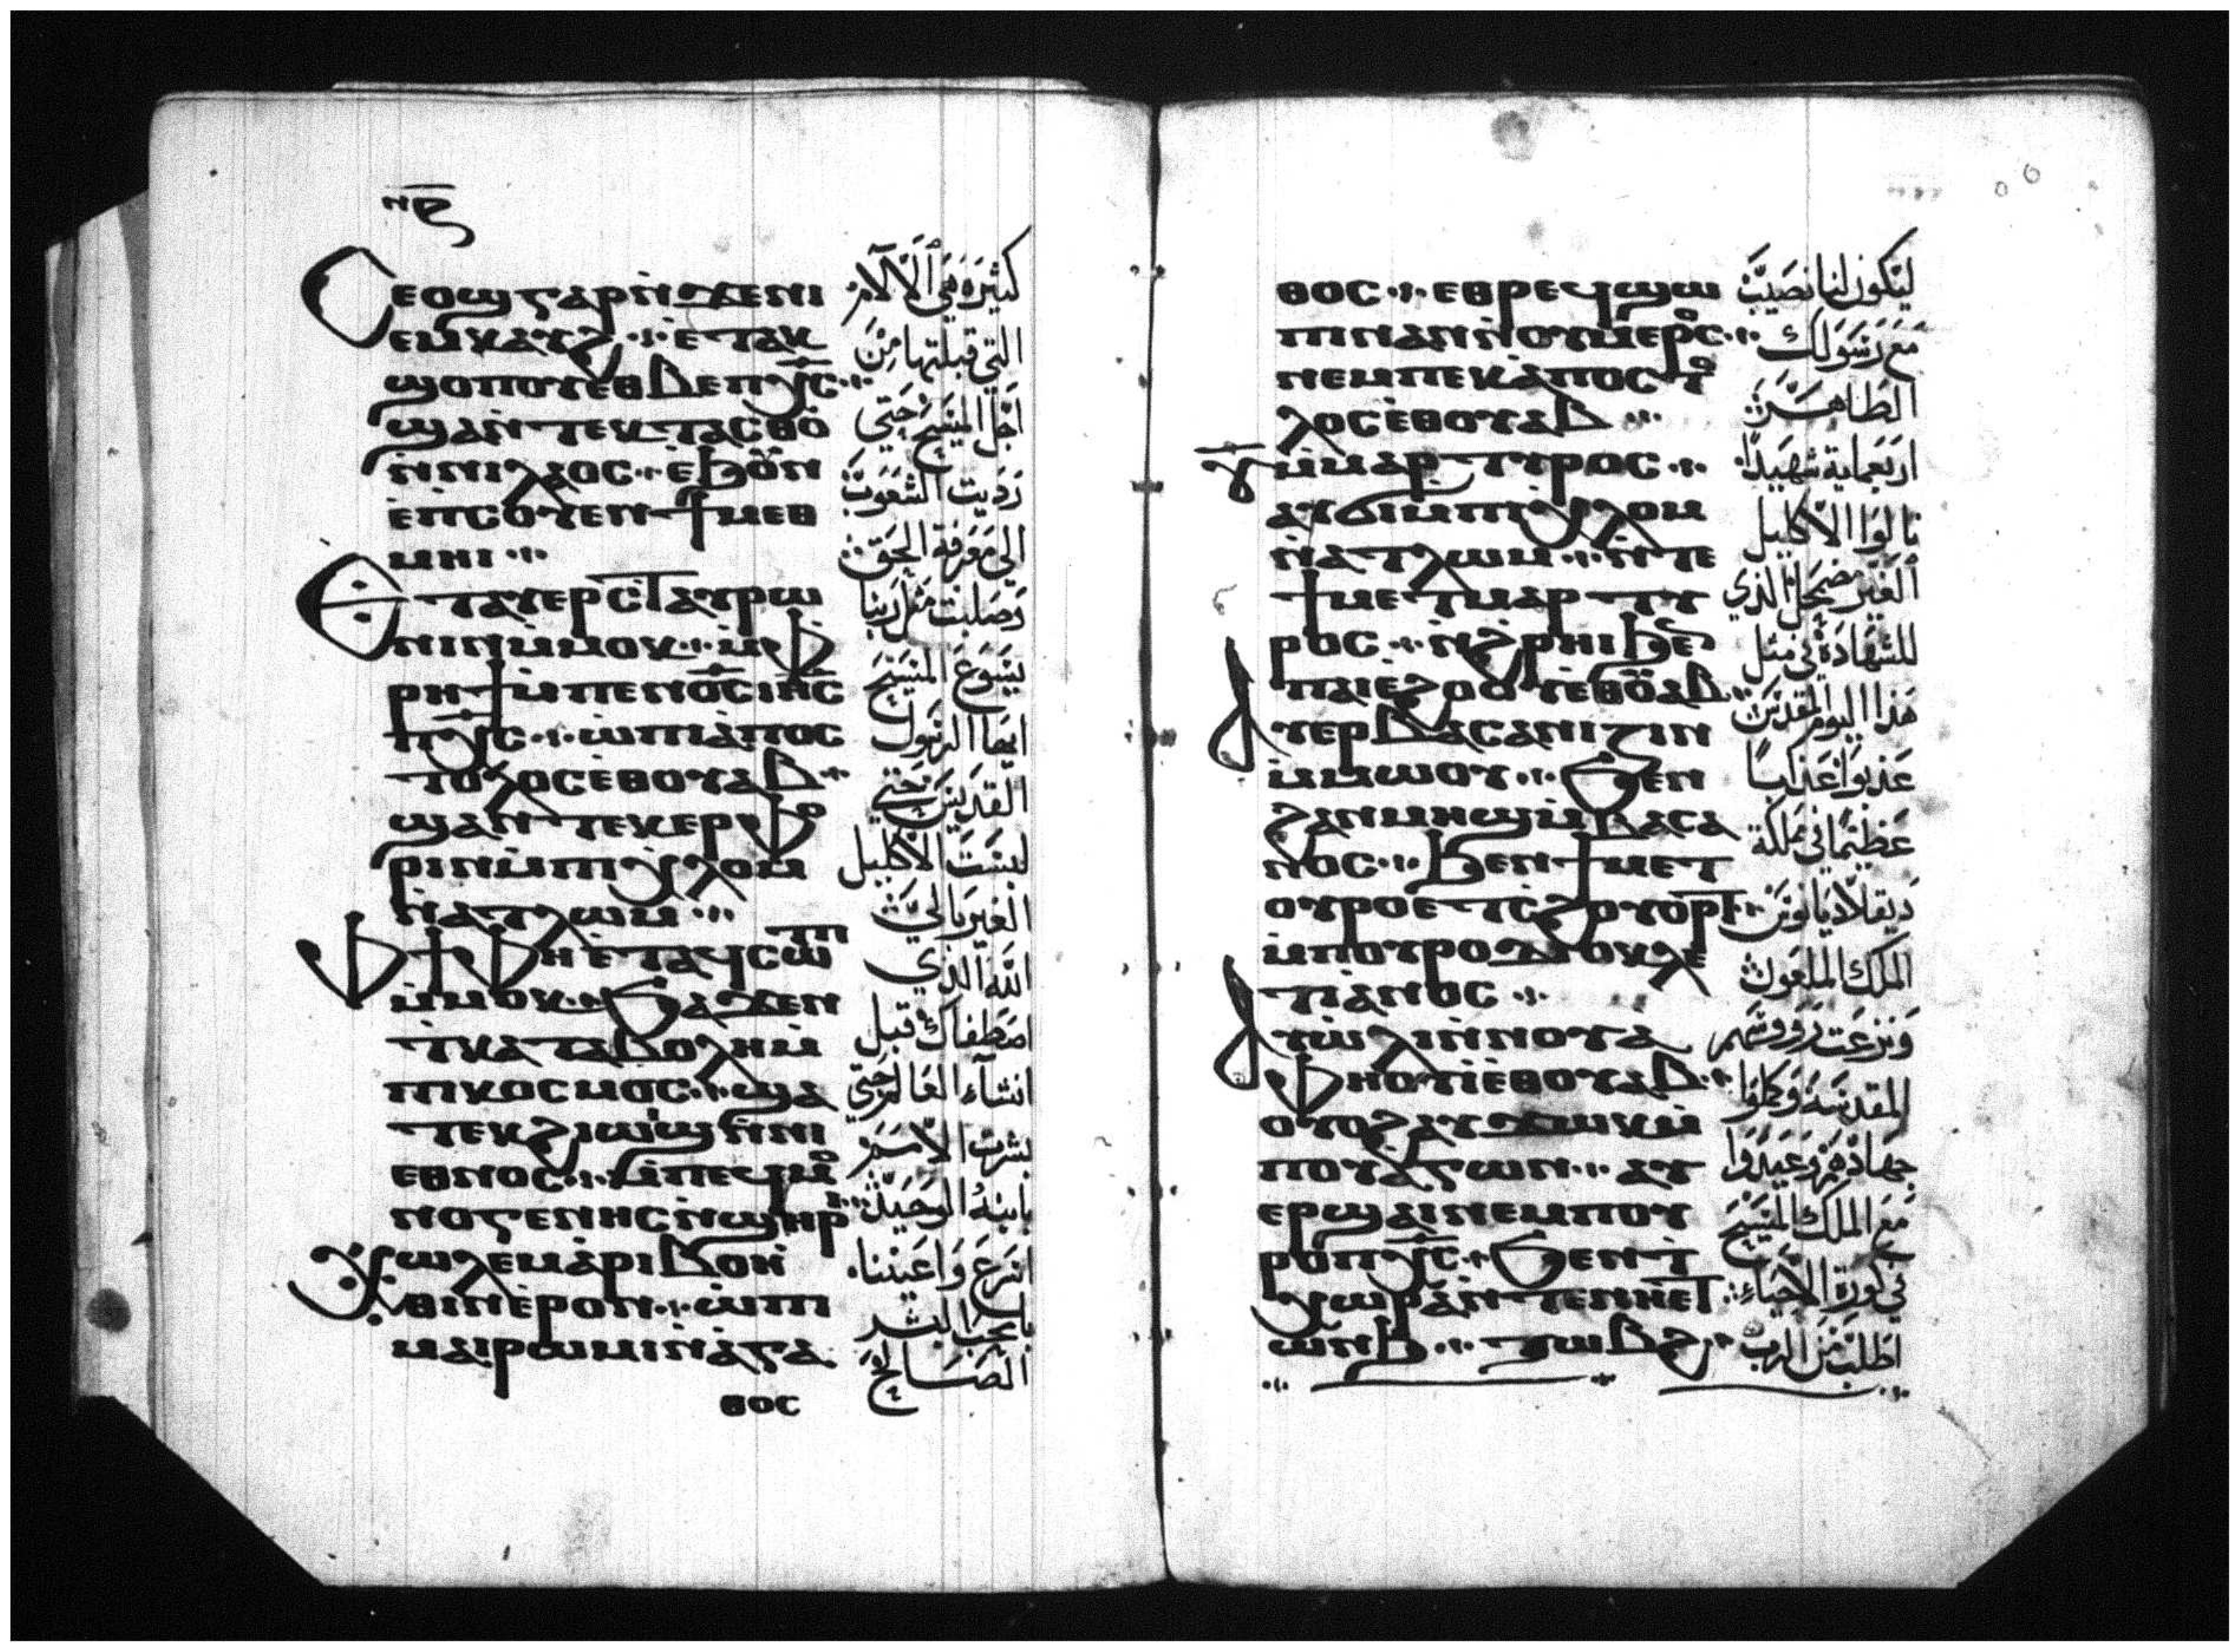 ⲛⲉ
Ⲥⲉⲟϣ ⲅⲁⲣ ⲛ̀ϫⲉⲛⲓ
ⲉⲙⲕⲁⲩϩ ⲉ̀ⲧⲁⲕ
ϣⲟⲡⲟⲩ ⲉⲑⲃⲉ ⲡⲭ̅ⲥ̅
ϣⲁⲛ̀ⲧⲉⲕⲧⲁⲥⲑⲟ
ⲛ̀ⲛⲓⲗⲁⲟⲥ ⲉ̀ϧⲟⲩⲛ
ⲉ̀ⲡⲥⲟⲩⲉⲛ ϯⲙⲉⲑ
ⲙⲏⲓ
Ⲉⲧⲁⲩⲉⲣⲥⲧⲁⲩⲣⲱ
ⲛⲓⲛ ⲙ̀ⲙⲟⲕ ⲙ̀ⲫ
ⲣⲏϯ ⲙ̀ⲡⲉⲛⲟ̅ⲥ̅ ⲓⲏ̅ⲥ̅
ⲡⲭ̅ⲥ̅ ⲱ̀ ⲡⲓⲁ̀ⲡⲟⲥ
ⲧⲟⲗⲟⲥ ⲉ̀ⲑⲟⲩⲁⲃ
ϣⲁⲛ̀ⲧⲉⲕⲉⲣⲫⲟ
ⲣⲓⲛ ⲙ̀ⲡⲓⲭⲗⲟⲙ
ⲛ̀ⲁⲧⲗⲱⲙ
Ⲫϯ ⲫⲏ ⲉ̀ⲧⲁϥⲥⲱⲧⲡ
ⲙ̀ⲙⲟⲕ ϧⲁϫⲉⲛ
ⲧⲕⲁⲧⲁⲃⲟⲗⲏ ⲙ̀
ⲡⲓⲕⲟⲥⲙⲟⲥ ϣⲁ
ⲧⲉⲕϩⲓⲱⲓϣ ⲛ̀ⲛⲓ
ⲉⲑⲛⲟⲥ ⲙ̀ⲡⲉϥⲙⲟ
ⲛⲟⲅⲉⲛⲏⲥ ⲛ̀ϣⲏⲣⲓ
Ϫⲱⲗⲉⲙ ⲁ̀ⲣⲓⲃⲟⲏ̀
ⲑⲓⲛ ⲉ̀ⲣⲟⲛ ⲱ̀ ⲡⲓ
ⲙⲁⲓⲣⲱⲙⲓ ⲛ̀ⲁ̀ⲅⲁ
ⲑⲟⲥ
كثيرة هي الآلام
التي قبلتها من
اجل المسيح حتي
رديت الشعوب
الي معرفة الحق
وصلبت مثل ربنا
يسوع المسيح
ايها الرسول
القديس حتي
لبست الاكليل
الغير بالي
الله الذي
اصطفاك قبل
انشآء العالم حتي
بشرت الامم
بابنه الوحيد
اسرع واعيننا
يا محب البشر
الصالح
ⲑⲟⲥ ⲉⲑⲣⲉϥϣⲱ
ⲡⲓ ⲛⲁⲛ ⲛ̀ⲟⲩⲙⲉⲣⲟⲥ
ⲛⲉⲙ ⲡⲉⲕⲁ̀ⲡⲟⲥⲧⲟ
ⲗⲟⲥ ⲉ̀ⲑⲟⲩⲁⲃ
ⲩ̅ ⲙ̀ⲙⲁⲣⲧⲩⲣⲟⲥ
ⲁⲩϭⲓ ⲙ̀ⲡⲓⲭⲗⲟⲙ
ⲛ̀ⲁⲧⲗⲱⲙ ⲛ̀ⲧⲉ
ϯⲙⲉⲧⲙⲁⲣⲧⲩ
ⲣⲟⲥ ⲛ̀ϩⲣⲏⲓ ϧⲉⲛ
ⲡⲁⲓⲉ̀ϩⲟⲟⲩ ⲉ̀ⲑⲟⲩⲁⲃ
Ⲁⲩⲉⲣⲃⲁⲥⲁⲛⲓⲍⲓⲛ
ⲙ̀ⲙⲱⲟⲩ ϧⲉⲛ
ϩⲁⲛⲙⲏϣ ⲙ̀ⲃⲁⲥⲁ
ⲛⲟⲥ ϧⲉⲛ ϯⲙⲉⲧ
ⲟⲩⲣⲟ ⲉⲧⲥϩⲟⲩⲟⲣⲧ
ⲙ̀ⲡⲟⲩⲣⲟ ⲇⲟⲩⲕⲗⲉ
ⲧⲓⲁ̀ⲛⲟⲥ
Ⲁⲩⲱ̀ⲗⲓ ⲛ̀ⲛⲟⲩⲁ
ⲫⲏⲟⲩⲓ̀ ⲉ̀ⲑⲟⲩⲁⲃ
ⲟⲩⲟϩ ⲁⲩϫⲱⲕ ⲙ̀
ⲡⲟⲩⲁ̀ⲅⲱⲛ ⲁⲩ
ⲉⲣϣⲁⲓ ⲛⲉⲙ ⲡⲟⲩ
ⲣⲟ ⲡⲭ̅ⲥ̅ ϧⲉⲛ ⲧ̀
ⲭⲱⲣⲁ ⲛ̀ⲧⲉ ⲛⲏⲉⲧ
ⲱⲛϧ ⲧⲱⲃϩ
ليكون لنا نصيب
مع رسولك
الطاهر
اربعماية شهيدا
نالوا الاكليل
الغير مضمحل الذي
للشهادة في مثل
هذا اليوم المقدس
عذبوا عذابا
عظيما في مملكة
ديقلاديانوس
الملك الملعون
ونزعت رووسهم
المقدسة وكملوا
جهادهم وعيدوا
مع الملك المسيح
في كورة الاحياء
اطلب من الرب